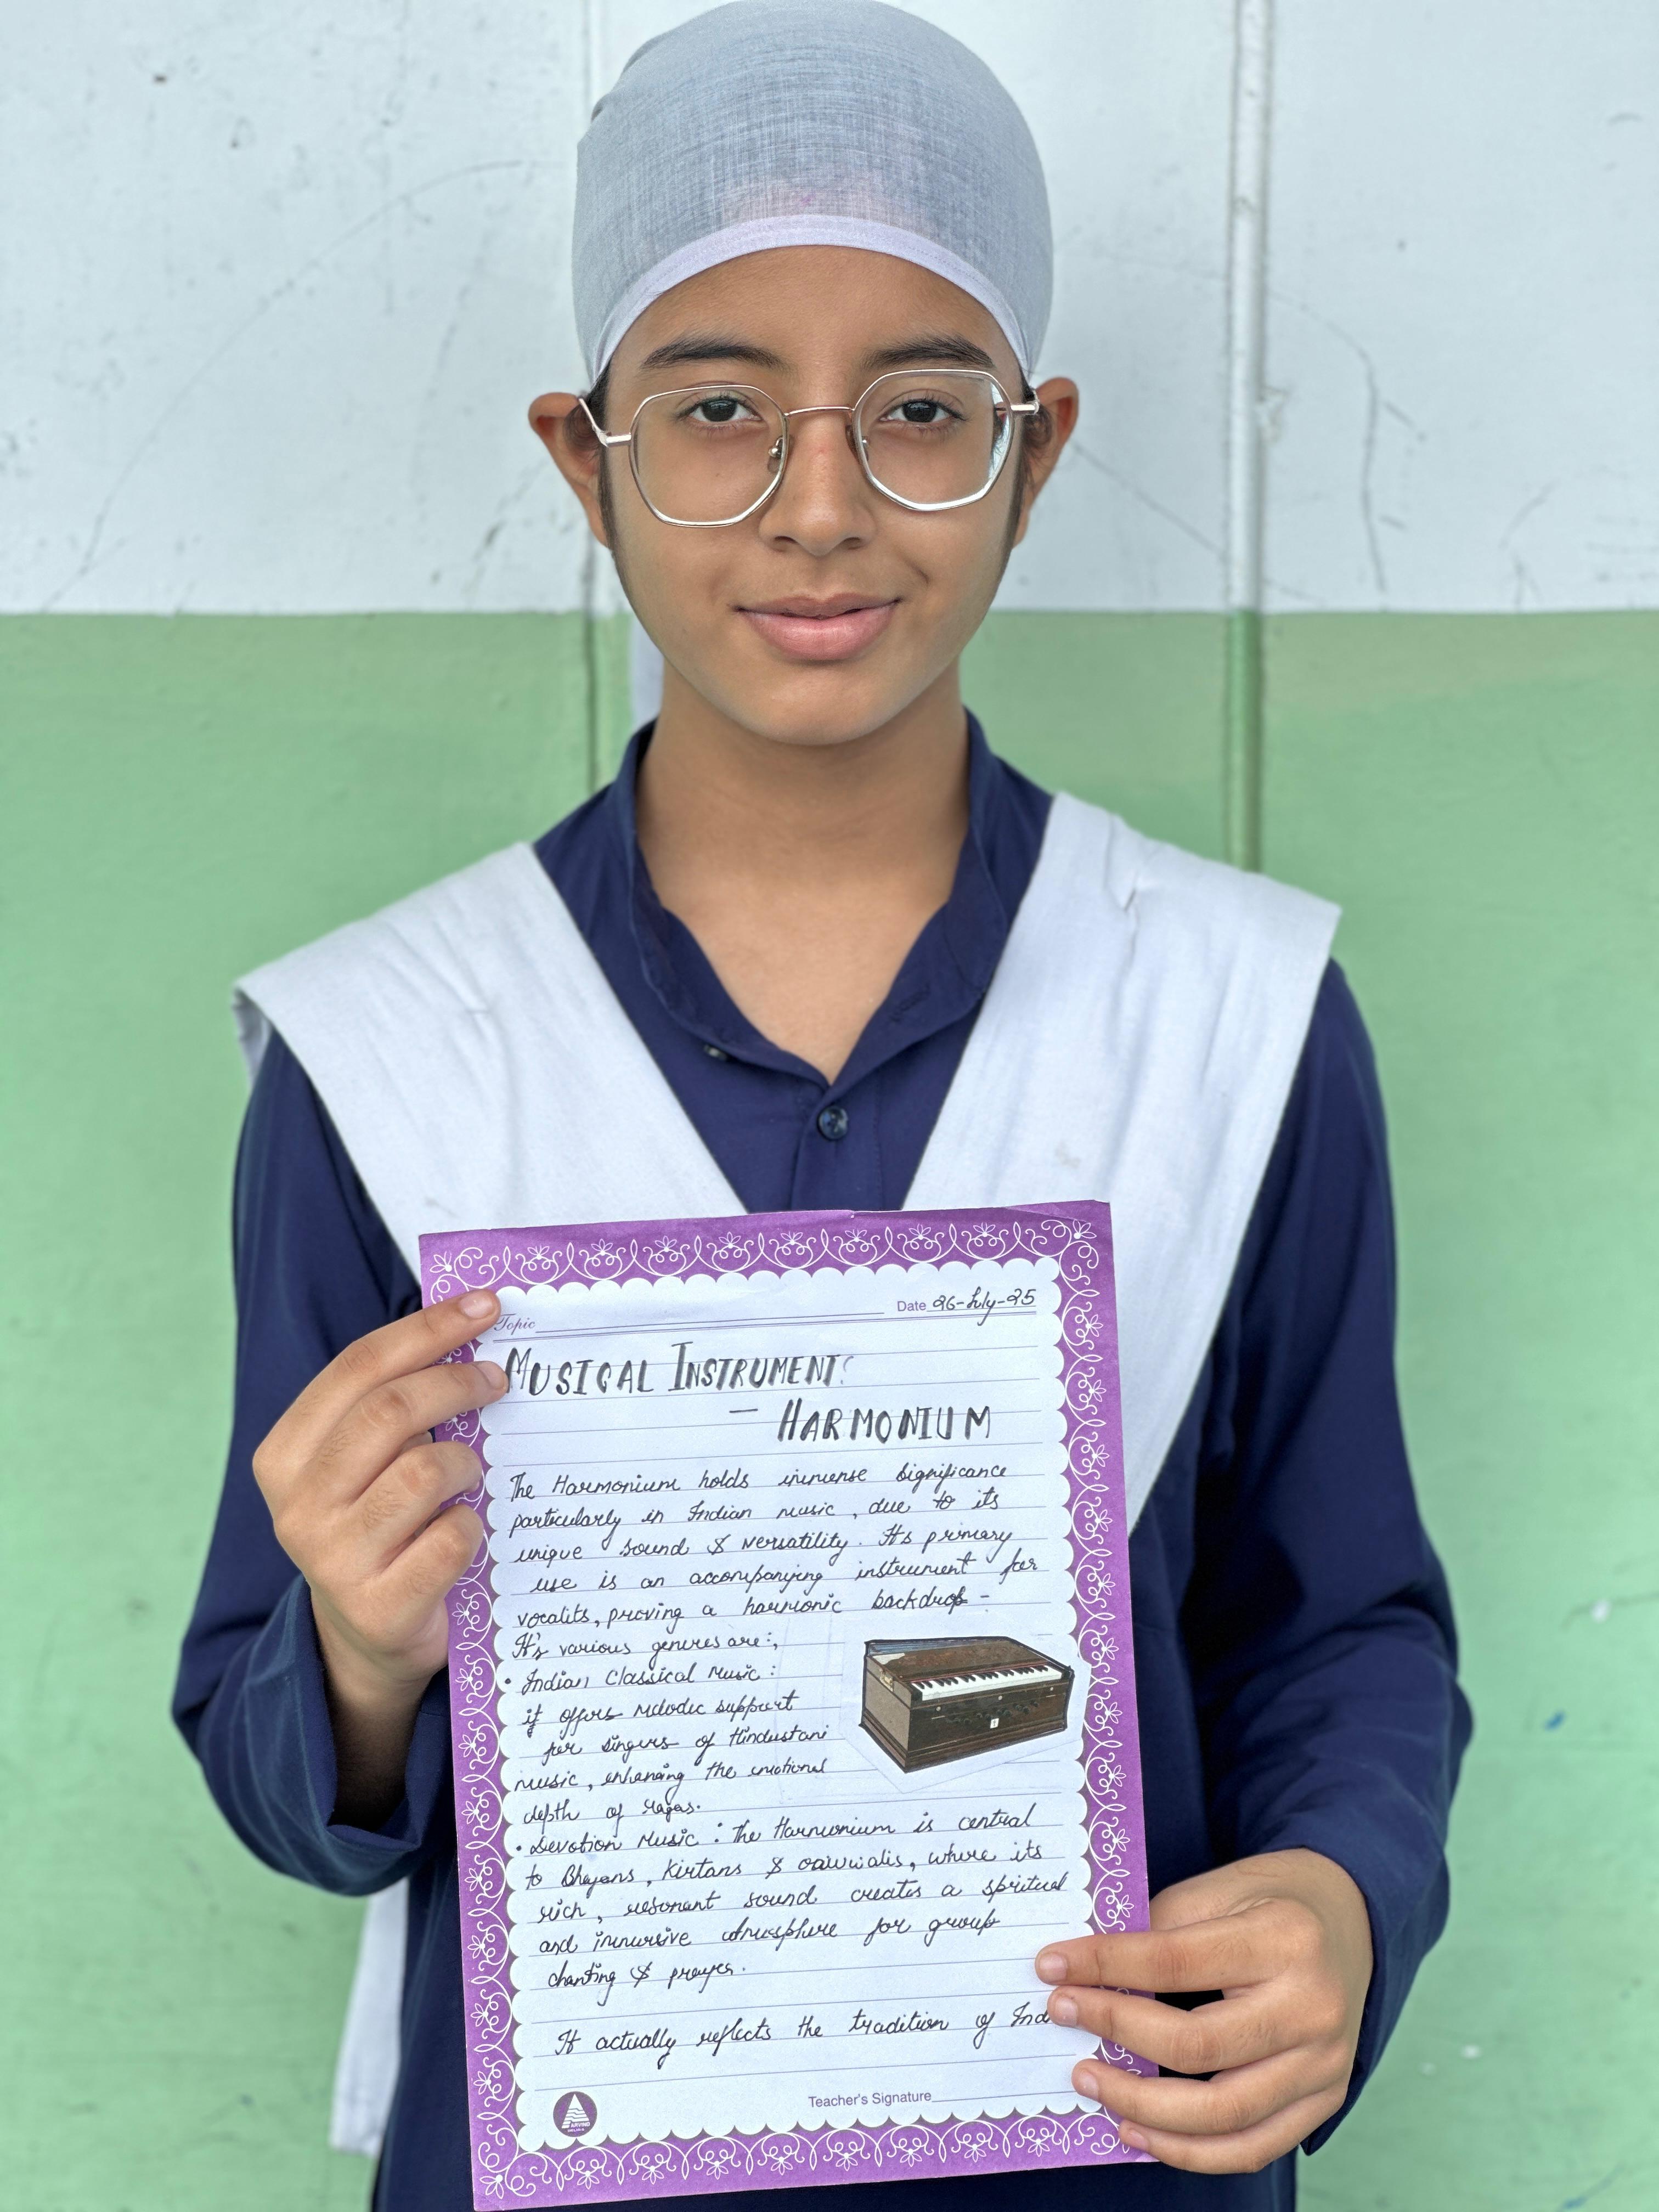 Topic
Date 26-July-25
MUSICAL INSTRUMENT:
- HARMONIUM
The Harmonium holds immense significance
particularly in Indian music, due to its
unique sound & versatility. Its primary
use is an accompanying instrument for
vocalits, proving a harmonic backdrop -
It's various genres are:,
• Indian Classical Music :
it offers melodic support
for singers of Hindustani
music, enhancing the emotional
depth of ragas.
• Devotion Music : The Harmonium is central
to Bhajans, Kirtans & qawwalis, where its
rich, resonant sound creates a spiritual
and immersive atmosphere for group
chanting & prayer.
It actually reflects the tradition of Ind
Teacher's Signature
ARVIND